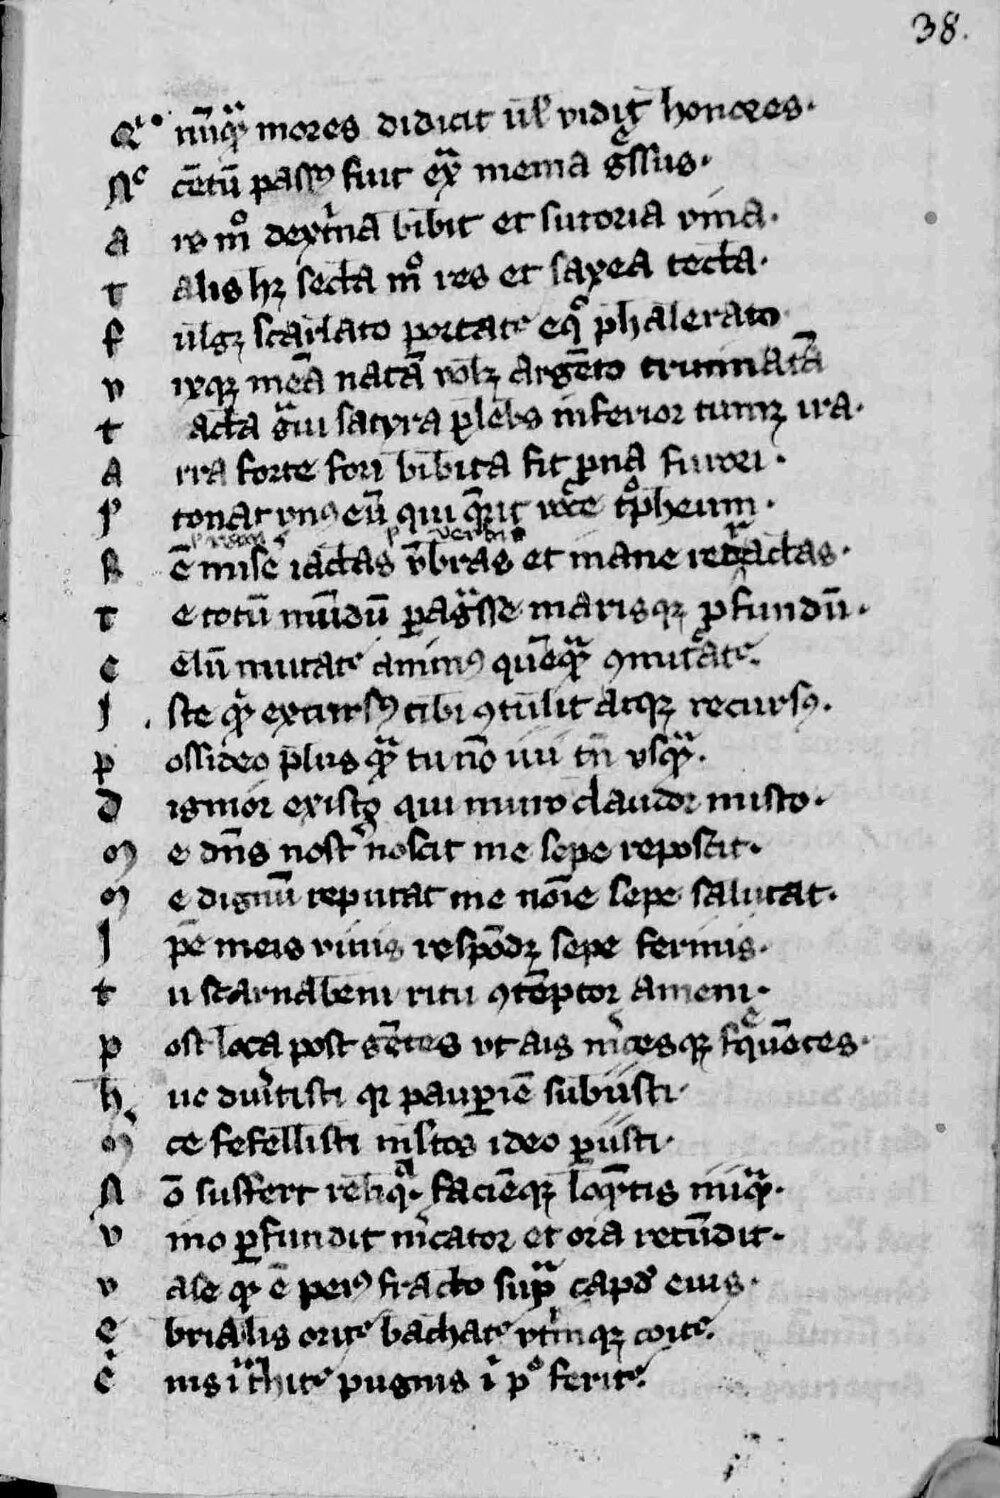 38.
Qͥ nūqᷓ mores didicit ul̄ vidiꝫ honores.
Nᶜ cētū passꝰ fuit exᷓ menia gᷓssus.
A modext̾na bibit et sutoria vina.
T alis hꝫ secta mͦ res et saxea tecta.
F ulgꝫ scarlato portatᵉ eqͦ phalerato
V ixqꝫ meā natā argēto
T acta gᷓui satyra plebs inferior tumꝫ ira.
A rra forte fori bibita fit ꝓna furori.
P tonat vnꝰ eū qui qͣrit tͦpheum.
R ē mise iactas v̄bras et inane
T e totū mūdū ꝑagᷓsse marisqꝫ ꝓfundū.
C elū mutatᵉ animꝰ quēqᷓ ꝯmutatᵉ.
I ste qͥ excursꝰ tibi ꝯtulit atqꝫ recursꝰ.
P ossideo plus qᷓ tu nō iui tn̄ vsqᷓ.
D ignior existo qui muro claudor in isto.
M e dn̄s nost̾ noscit me sepe reposcit.
M e dignū reputat me nōie sepe salutat.
I pē meis vinis respōdꝫ sepe ferinis.
T u scarnabeni ritu ꝯtēptor ameni.
P ost loca post gētes vt ais m̾cesqꝫ sequētes.
H uc diu̾tisti qꝛ pauꝑiē subiisti.
M̾ ce fefellisti iustos ideo ꝑiisti.
N ō suffert reliqᷓ. faciēqꝫ loqᷓtis iniqᷓ.
V ino ꝑfundit m̾cator et ora retūdit.
V ase qꝫ ē fracto supᷓ capᵈ eius.
E brialis oritᵉ bachatᵉ vt̾inqꝫ coitᵉ.
C nis it̾hitᵉ pugnis i pͦ feritᵉ.